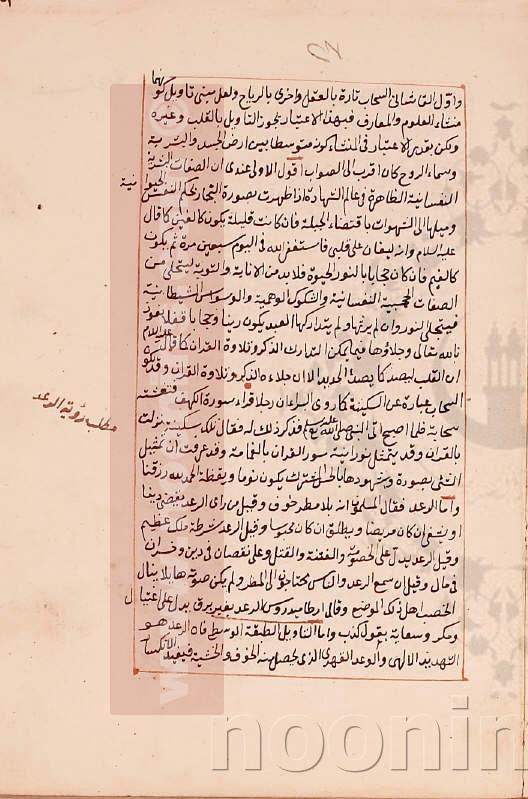 واوّل القاشاني السحاب تارة بالعقل واخرى بالرياح ولعل مبنى تاويل كونهما
منشاء العلوم والمعارف فبهذا الاعتبار يجوز التاويل بالقلب وغيره
ولكن بقدير الاعتبار في النشاء كونه متوسطا بين ارض الجسد والبشرية
وسماء الروح كان اقرب الى الصواب اقول الاولى عندي ان الصفات البشرية
النفسانية الظاهرة في عالم الشهادة اذا ظهرت بصورة البخار بحكم النفس الحيوانية
وميلها الى الشهوات باقتضاء الجبلة فان كانت قليلة يكون كالغين كما قال
عليه السلام وانه ليغان على قلبي فاستغفر الله في اليوم سبعين مرة ثم يكون
كالغيم فان كان حجابا بالنور الحيوة فلا بد من الانابة والتوبة ليتجلى من
الصفات النفسانية والشكوك الوهمية والوسواس الشيطانية
فيتجلى النور وان لم يرتها ولم يتداركها العبد يكون رينا وحجابا قفلا نعوذ
بالله تعالى وجلاؤها فيما يمكن التدارك الذكر وتلاوة القران كما قال عليه السلام
ان القلب ليصدا كما يصدا الحديد الا ان جلاءه الذكر وتلاوة القران وقد يكون
السحاب عبارة عن السكينة كما روى البراء ان رجلا قراء سورة الكهف فتغشته
سحابة فلما اصبح اتى النبي صلى الله عليه وسلم فذكر ذلك له فقال تلك سكينة نزلت
بالقران وقد يتمثل نورانية سور القران بالغمامة وقد عرفت ان تمثيل
التجلى بصورة وشهودها بالحس المشترك يكون نوما ويقظة الحمد لله رزقنا
واما الرعد فقال المسلمون انه بلا مطر خوف وقيل من راى الرعد يقضى دينا
او يشفى ان كان مريضا ويطلق ان كان محبوسا وقيل الرعد شرطة ملك عظيم
وقيل الرعد يدل على الخصومة والفتنة والقتل وعلى نقصان في دين وخسران
في مال وقيل ان سمع الرعد والناس محتاجون الى المطر ولم يكن صوتها هايلا ينال
الخصب اهل ذلك الموضع وقال ارطاميدروس الرعد بغير برق يدل على اغتيال
ومكر وسعاية بقول كذب واما التاويل الطبقة الوسط فاه الرعد هو
التهديد الالهي والوعد القهري الذي يحصل منه الخوف والخشية
مطلب رؤية الرعد
noonin